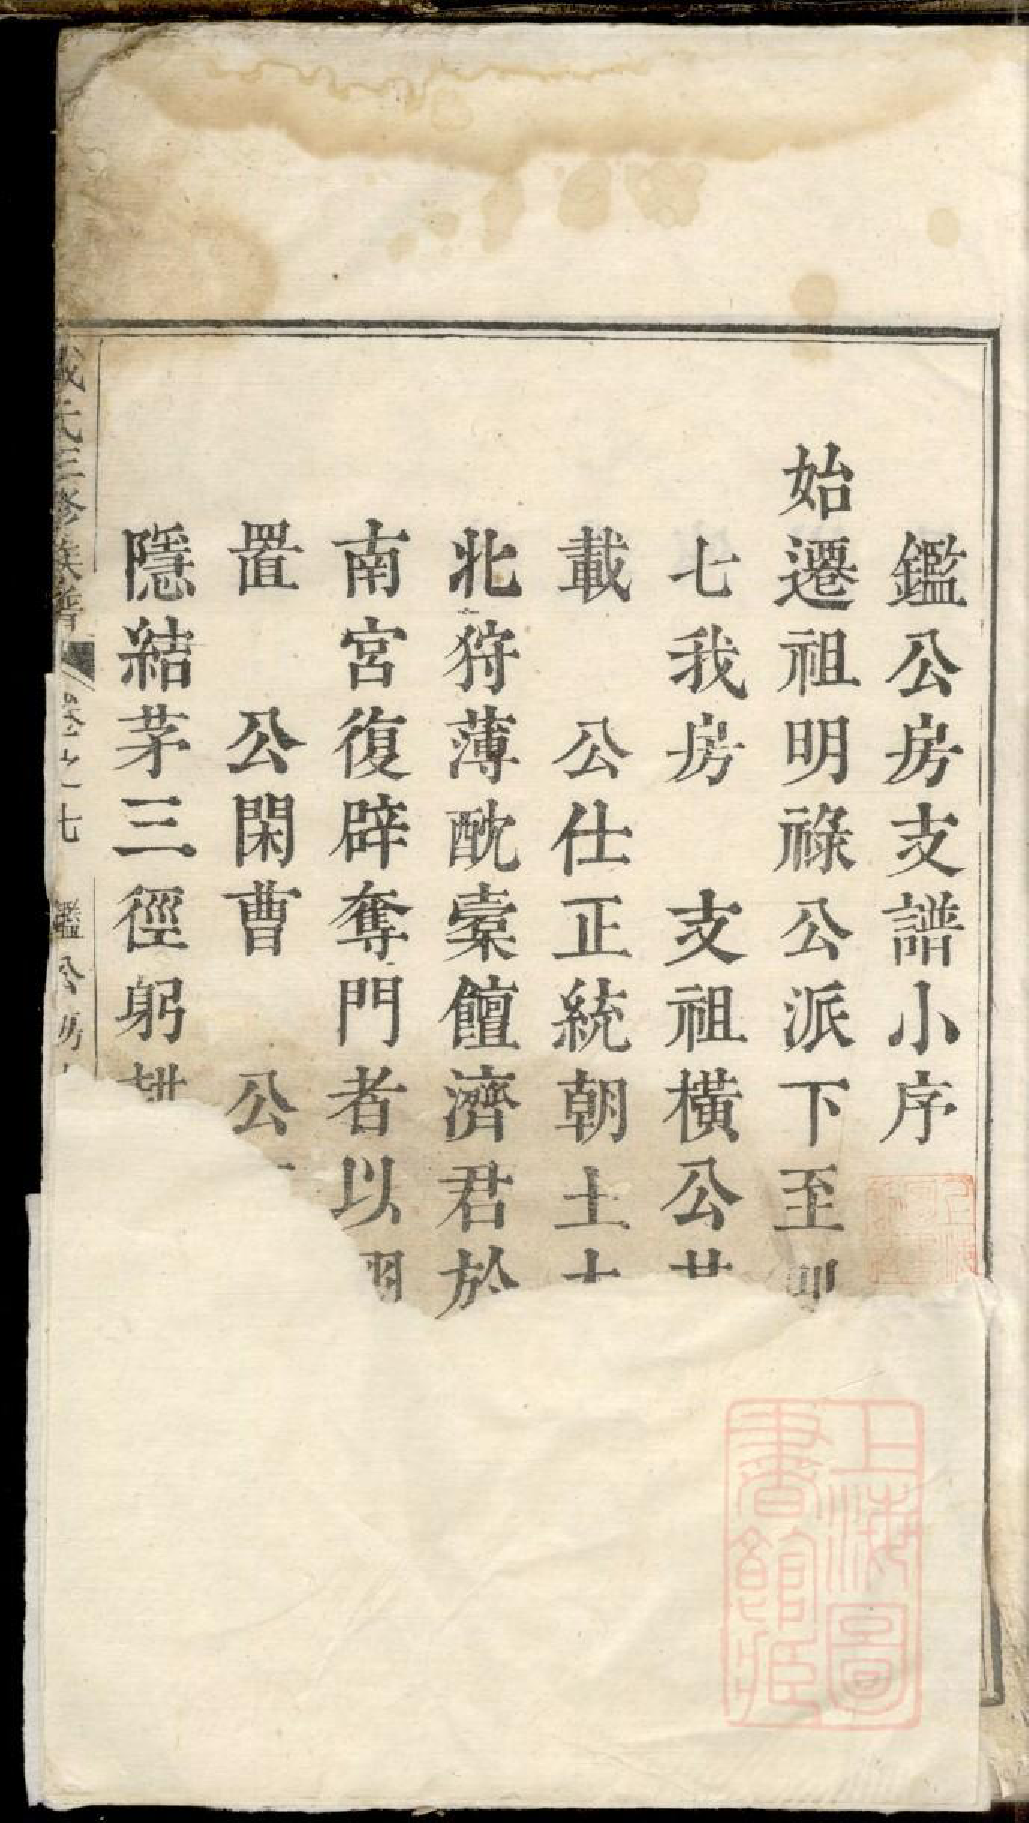 鑑公房支譜小序
始遷祖明祿公派下至
七我房 支祖橫公
載 公仕正統朝土
北狩薄酖橐饘濟君於
南宮復辟奪門者以
置 公閑曹 公
隱結茅三徑躬
氏三修族譜
卷之七 鑑公房
上海圖書館藏